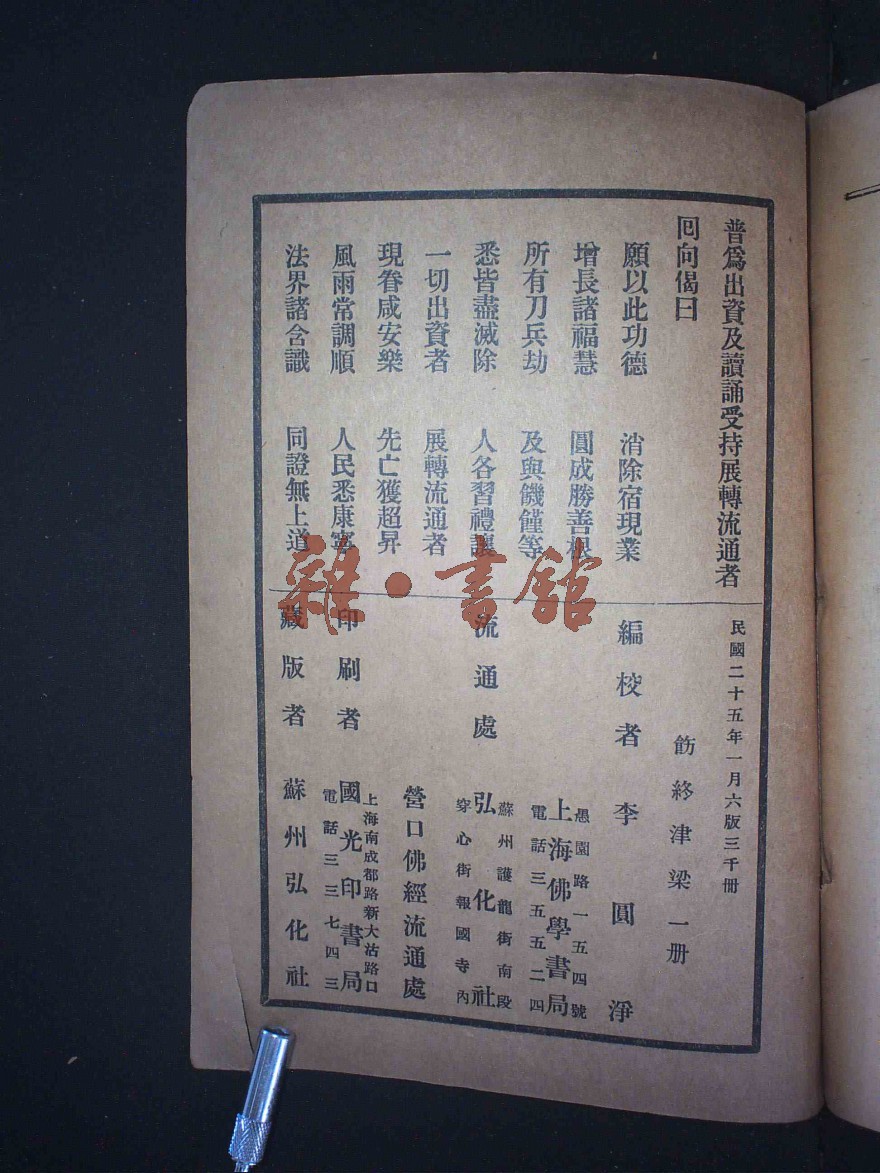 普爲出資及讀誦受持展轉流通者
囘向偈曰
願以此功德 消除宿現業
增長諸福慧 圓成勝善根
所有刀兵劫 及與饑饉等
悉皆盡滅除 人各習禮讓
一切出資者 展轉流通者
現眷咸安樂 先亡獲超昇
風雨常調順 人民悉康寧
法界諸含識 同證無上道
民國二十五年一月六版三千册
飭終津梁一册
編校者 李圓淨
流通處
愚園路一五四號
上海佛學書局
電話三五五二四
蘇州護龍街南段
弘化社
穿心街報國寺內
營口佛經流通處
印刷者
上海南成都路新大沽路口
國光印書局
電話三三七四三
藏版者 蘇州弘化社
雜·書館